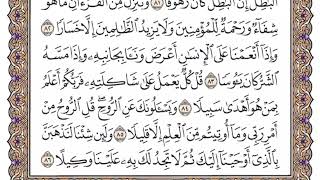 ٱلْبَٰطِلُ إِنَّ ٱلْبَٰطِلَ كَانَ زَهُوقًا ٨١ وَنُنَزِّلُ مِنَ ٱلْقُرْءَانِ مَا هُوَ
شِفَآءٌ وَرَحْمَةٌ لِّلْمُؤْمِنِينَ وَلَا يَزِيدُ ٱلظَّٰلِمِينَ إِلَّا خَسَارًا ٨٢
وَإِذَآ أَنْعَمْنَا عَلَى ٱلْإِنسَٰنِ أَعْرَضَ وَنَـَٔا بِجَانِبِهِۦ وَإِذَا مَسَّهُ
ٱلشَّرُّ كَانَ يَـُٔوسًا ٨٣ قُلْ كُلٌّ يَعْمَلُ عَلَىٰ شَاكِلَتِهِۦ فَرَبُّكُمْ أَعْلَمُ
بِمَنْ هُوَ أَهْدَىٰ سَبِيلًا ٨٤ وَيَسْـَٔلُونَكَ عَنِ ٱلرُّوحِ قُلِ ٱلرُّوحُ مِنْ
أَمْرِ رَبِّى وَمَآ أُوتِيتُم مِّنَ ٱلْعِلْمِ إِلَّا قَلِيلًا ٨٥ وَلَئِن شِئْنَا لَنَذْهَبَنَّ
بِٱلَّذِىٓ أَوْحَيْنَآ إِلَيْكَ ثُمَّ لَا تَجِدُ لَكَ بِهِۦ عَلَيْنَا وَكِيلًا ٨٦